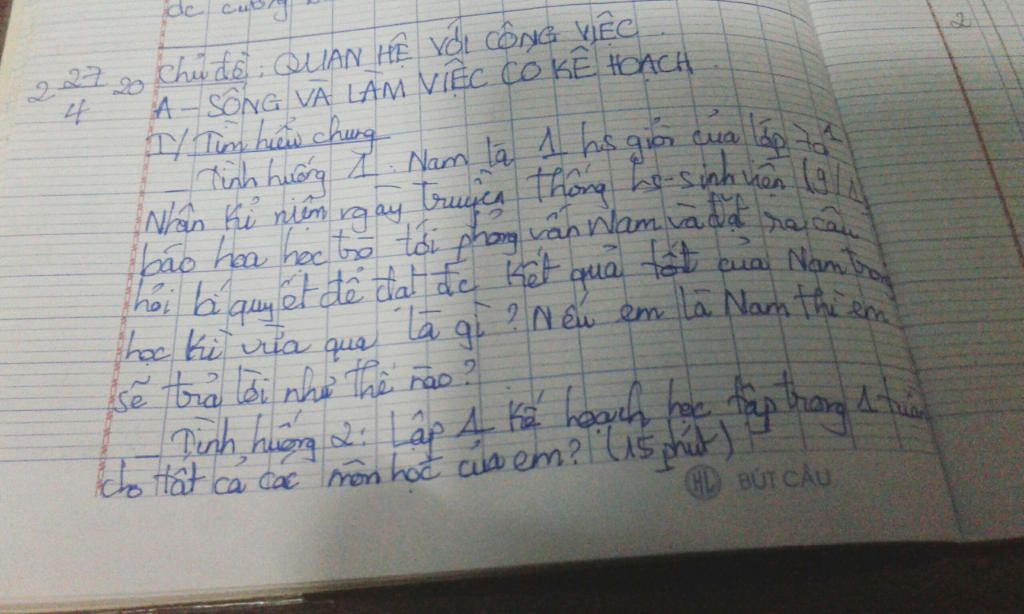 đc cường
2
2 27/4 20 Chủ đề: QUAN HỆ VỚI CÔNG VIỆC.
A - SỐNG VÀ LÀM VIỆC CÓ KẾ HOẠCH
I/ Tìm hiểu chung
_ Tình huống 1: Nam là 1 hs giỏi của lớp 7a1
Nhân kỉ niệm ngày truyền thống hs-sinh viên (9/1
báo hoa học trò tới phỏng vấn Nam và đặt ra câu
hỏi bí quyết để đạt đc kết quả tốt của Nam trong
học kì vừa qua là gì? Nếu em là Nam thì em
sẽ trả lời như thế nào?
_ Tình huống 2: Lập 1 kế hoạch học tập trong 1 tuần
cho tất cả các môn học của em? (15 phút)
HL BÚT CÂU